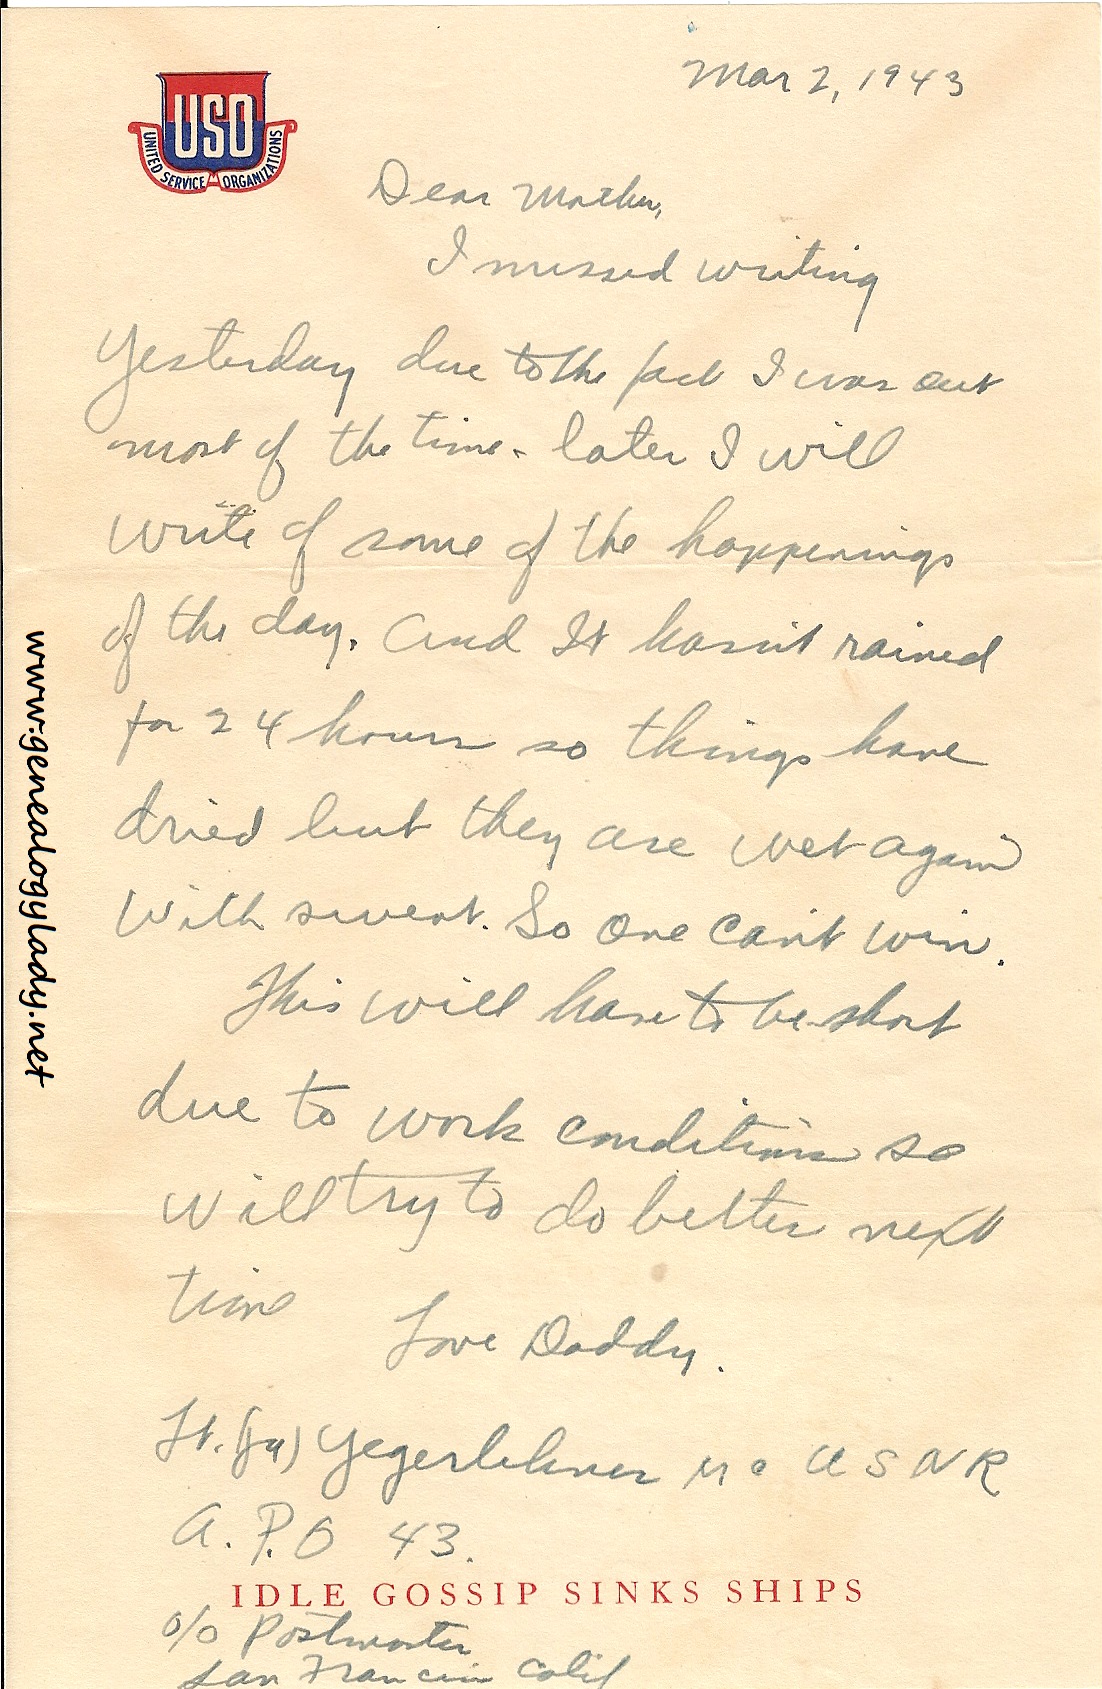 Mar 2, 1943
USO
UNITED SERVICE ORGANIZATIONS
Dear Mother,
I missed writing
Yesterday due to the fact I was out
most of the time - later I will
write of some of the happenings
of the day. And It hasn't rained
for 24 hours so things have
dried but they are wet again
with sweat. So one can't win.
This will have to be short
due to work conditions so
will try to do better next
time
Love Daddy.
Lt. (jg) Yegerlehner MC USNR
A.P.O 43.
IDLE GOSSIP SINKS SHIPS
c/o Postmaster
San Francisco Calif
www.genealogylady.net